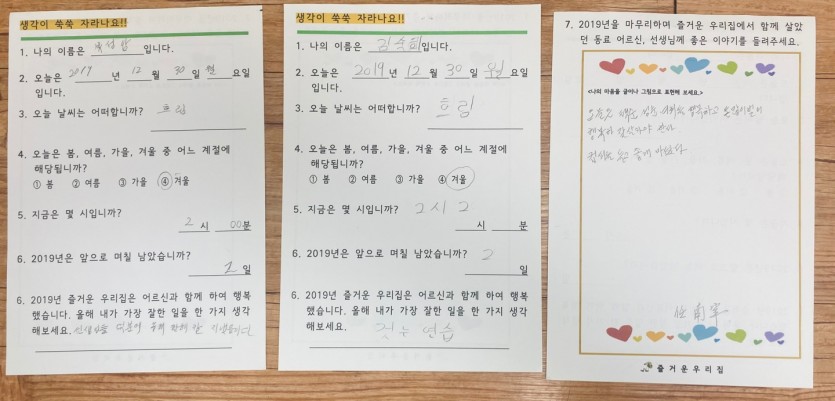 생각이 쑥쑥 자라나요!!
1. 나의 이름은 입니다.
2. 오늘은 2019 년 12 월 30 일 월 요일
입니다.
3. 오늘 날씨는 어떠합니까? 흐림
4. 오늘은 봄, 여름, 가을, 겨울 중 어느 계절에
해당됩니까?
① 봄 ② 여름 ③ 가을 ④ 겨울
5. 지금은 몇 시입니까?
2 시 00분
6. 2019년은 앞으로 며칠 남았습니까?
1 일
6. 2019년 즐거운 우리집은 어르신과 함께 하여 행복
했습니다. 올해 내가 가장 잘한 일을 한 가지 생각
해보세요.
생각이 쑥쑥 자라나요!!
1. 나의 이름은 김숙희 입니다.
2. 오늘은 2019 년 12 월 30 일 월 요일
입니다.
3. 오늘 날씨는 어떠합니까? 흐림
4. 오늘은 봄, 여름, 가을, 겨울 중 어느 계절에
해당됩니까?
① 봄 ② 여름 ③ 가을 ④ 겨울
5. 지금은 몇 시입니까? 2시 2
시 분
6. 2019년은 앞으로 며칠 남았습니까?
2 일
6. 2019년 즐거운 우리집은 어르신과 함께 하여 행복
했습니다. 올해 내가 가장 잘한 일을 한 가지 생각
해보세요. 걷는 연습
7. 2019년을 마무리하며 즐거운 우리집에서 함께 살았
던 동료 어르신, 선생님께 좋은 이야기를 들려주세요.
<나의 마음을 글이나 그림으로 표현해 보세요.>
즐거운우리집